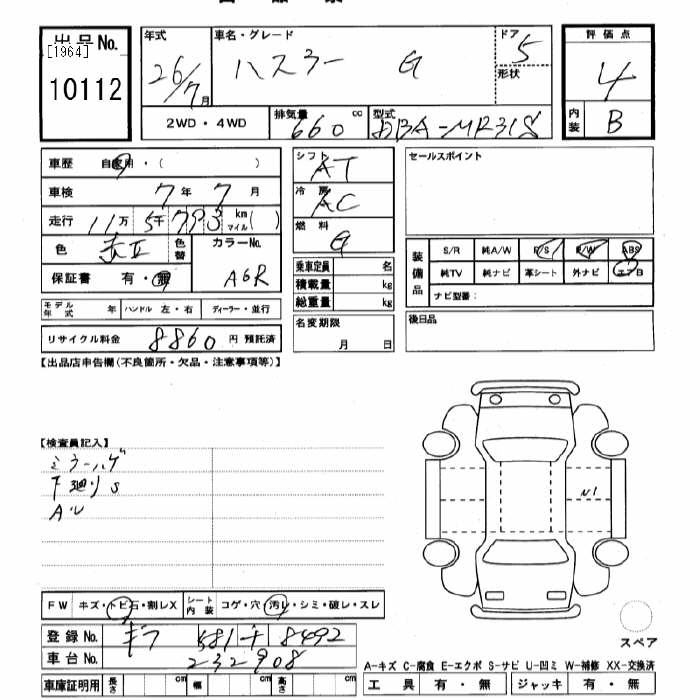 出品No.
[1964]
10112
年式
26/7月
車名・グレード
ハスラー G
ドア 5
形状
評価点
4
内装 B
2WD・4WD
排気量 cc
660
型式
DBA-MR31S
車歴 自家用・( )
車検 7年7月
走行 11万5千793 km マイル( )
色 赤Ⅱ 色替
カラーNo.
A6R
保証書 有・無
モデル年式 年 ハンドル 左・右 ディーラー・並行
リサイクル料金 8860円 預託済
シフト AT
冷房 AC
燃料 G
乗車定員 名
積載量 kg
総重量 kg
名変期限
月 日
セールスポイント
装備品
S/R 純A/W P/S P/W ABS
純TV 純ナビ 革シート 外ナビ エアB
ナビ型番:
後日品
【出品店申告欄(不良箇所・欠品・注意事項等)】
【検査員記入】
ミラーハゲ
下廻りS
AU
FW キズ・トビ石・割レX シート内装 コゲ・穴・汚レ・シミ・破レ・スレ
登録No. ギフ 581 チ 8492
車台No. 232908
車庫証明用 長さ cm 幅 cm 高さ cm
スペア
A-キズ C-腐食 E-エクボ S-サビ U-凹ミ W-補修 XX-交換済
工具 有・無 ジャッキ 有・無